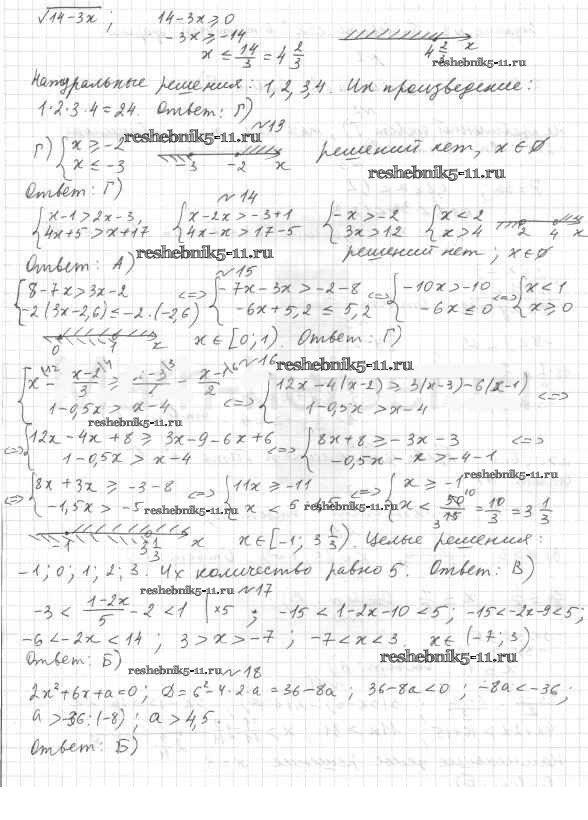 √(14-3x) ; 14-3x ≥ 0
-3x ≥ -14
x ≤ 14/3 = 4 2/3
4 2/3 x
reshebnik5-11.ru
Натуральные решения: 1, 2, 3, 4. Их произведение:
1·2·3·4=24. Ответ: Г)
reshebnik5-11.ru
№13
Г) { x ≥ -2 x ≤ -3 -3 -2 x решений нет, x ∈ ∅
reshebnik5-11.ru
Ответ: Г)
№14
{ x-1 > 2x-3, 4x+5 > x+17 { x-2x > -3+1 4x-x > 17-5 { -x > -2 3x > 12 { x < 2 x > 4 2 4 x
reshebnik5-11.ru
решений нет; x ∈ ∅
Ответ: А)
№15
{ 8-7x > 3x-2 -2(3x-2,6) ≤ -2·(-2,6) <=> { -7x-3x > -2-8 -6x+5,2 ≤ 5,2 <=> { -10x > -10 -6x ≤ 0 <=> { x < 1 x ≥ 0
0 1 x x ∈ [0; 1). Ответ: Г)
№16
reshebnik5-11.ru
x - (x-2)/3 ≥ - 2
1-0,5x > x-4 <=> { 12x-4(x-2) ≥ 3(x-3)-6(x-1) 1-0,5x > x-4 <=>
reshebnik5-11.ru
<=> { 12x-4x+8 ≥ 3x-9-6x+6 1-0,5x > x-4 <=> { 8x+8 ≥ -3x-3 -0,5x - x > -4-1 <=>
<=> { 8x+3x ≥ -3-8 -1,5x > -5 <=> { 11x ≥ -11 x < 5 <=> { x ≥ -1 x < 50/15 = 10/3 = 3 1/3
reshebnik5-11.ru
reshebnik5-11.ru
reshebnik5-11.ru
-1 3 1/3 x x ∈ [-1; 3 1/3). Целые решения:
-1; 0; 1; 2; 3. Их количество равно 5. Ответ: В)
reshebnik5-11.ru
№17
-3 < (1-2x)/5 - 2 < 1 | ×5 ; -15 < 1-2x-10 < 5; -15 < -2x-9 < 5;
-6 < -2x < 14 ; 3 > x > -7 ; -7 < x < 3. x ∈ (-7; 3)
Ответ: Б)
reshebnik5-11.ru
reshebnik5-11.ru
№18
2x²+6x+a=0 ; D=6²-4·2·a=36-8a ; 36-8a<0 ; -8a<-36;
a > -36:(-8) ; a > 4,5.
Ответ: Б)